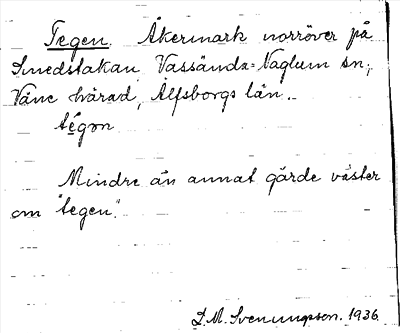 Tegen. Åkermark norröver på
Smedstakan Vassända=Naglum sn,
Väne härad, Älfsborgs län.
tégən
Mindre än annat gärde väster
om "tegen".
D. M. Svenungsson. 1936